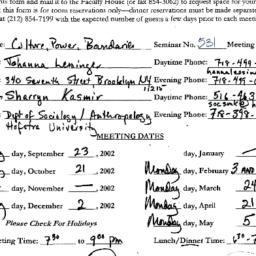 is form and mail it to the Faculty House (or fax 854-3062) to request space for your
that this form is for room reservations only—dinner reservations must be made separate
at (212) 854-7199 with the expected number of guests a few days prior to each meet
e: Culture, Power, Boundaries Seminar No. 531 Meeting
Johanna Lessinger Daytime Phone: 718-499-
: 390 Seventh Street, Brooklyn NY 11215 Evening Phone: 718-499-
Sharryn Kasmir Daytime Phone: 516-463
: Dept of Sociology / Anthropology Evening Phone: 718-398-
Hofstra University
MEETING DATES
day, September 23, 2002 day, January —
day, October 21, 2002 Monday, February 3 AND
day, November —, 2002 Monday, March 24
day, December 2, 2002 Monday, April 21
Please Check For Holidays Monday, May 5
eting Time: 7:30 to 9:00 pm Lunch/Dinner Time: